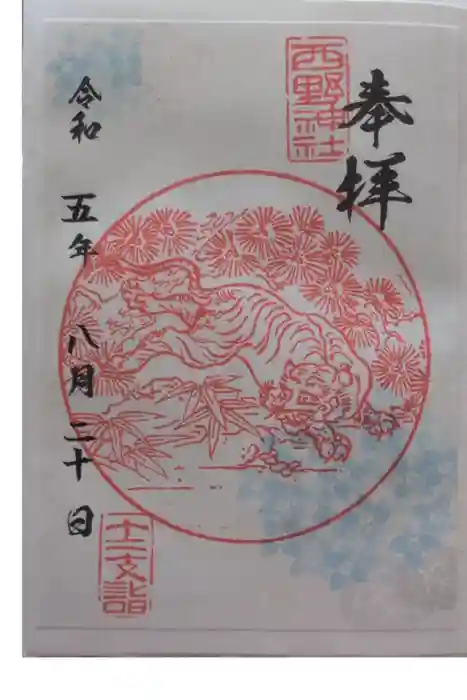 奉拝
西野神社
令和 五年 八月 二十 日
十二支詣